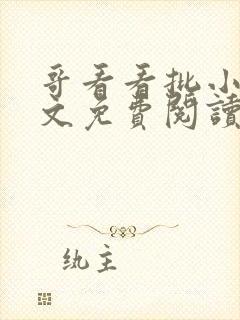 哥看看批小
文免費閱讀
纨主